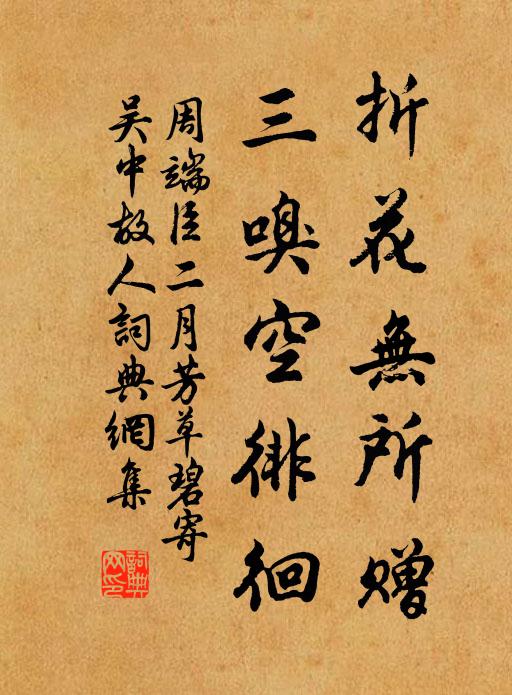 折花無所贈
三嗅空徘徊
周端臣二月芳草碧寄
吴中故人詞典網集
詞典網印